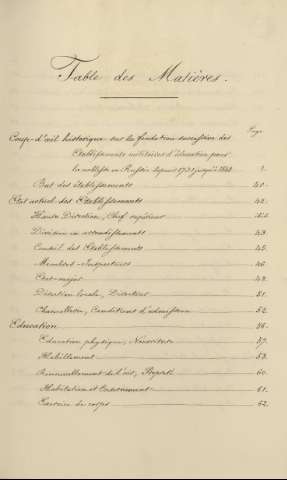 Table des Matières.
Page.
Coup-d'œil historique sur la fondation successive des
Etablissements militaires d'éducation pour
la noblesse en Russie depuis 1731 jusqu'à
But des établissements 40.
Etat actuel des Etablissements 42.
Haute Direction, Chef supérieur
Division en arrondissements 43.
Conseil des Etablissements 45.
Membres-Inspecteurs 46.
Etat-major
Direction locale, Directeurs 51.
Chancelleries, Conditions d'admission 52.
Education 56.
Education physique, Nourriture 57.
Habillement 59.
Renouvellement de l'air, Propreté 60.
Habitation et Casernement 61.
Exercice du corps 62.